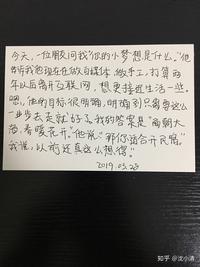 今天，一位朋友问我“你的小梦想是什么。”他
告诉我他现在在做自媒体，做手工，打算两
年以后离开互联网，想更接近生活一些。
嗯，他的目标，很明确，明确到只需要这么
一步步去走就好了。我的答案是“面朝大
海，春暖花开。”他说“那你适合开民宿。”
我说，以前还真这么想得。”
2019.03.28
知乎 @沈小清